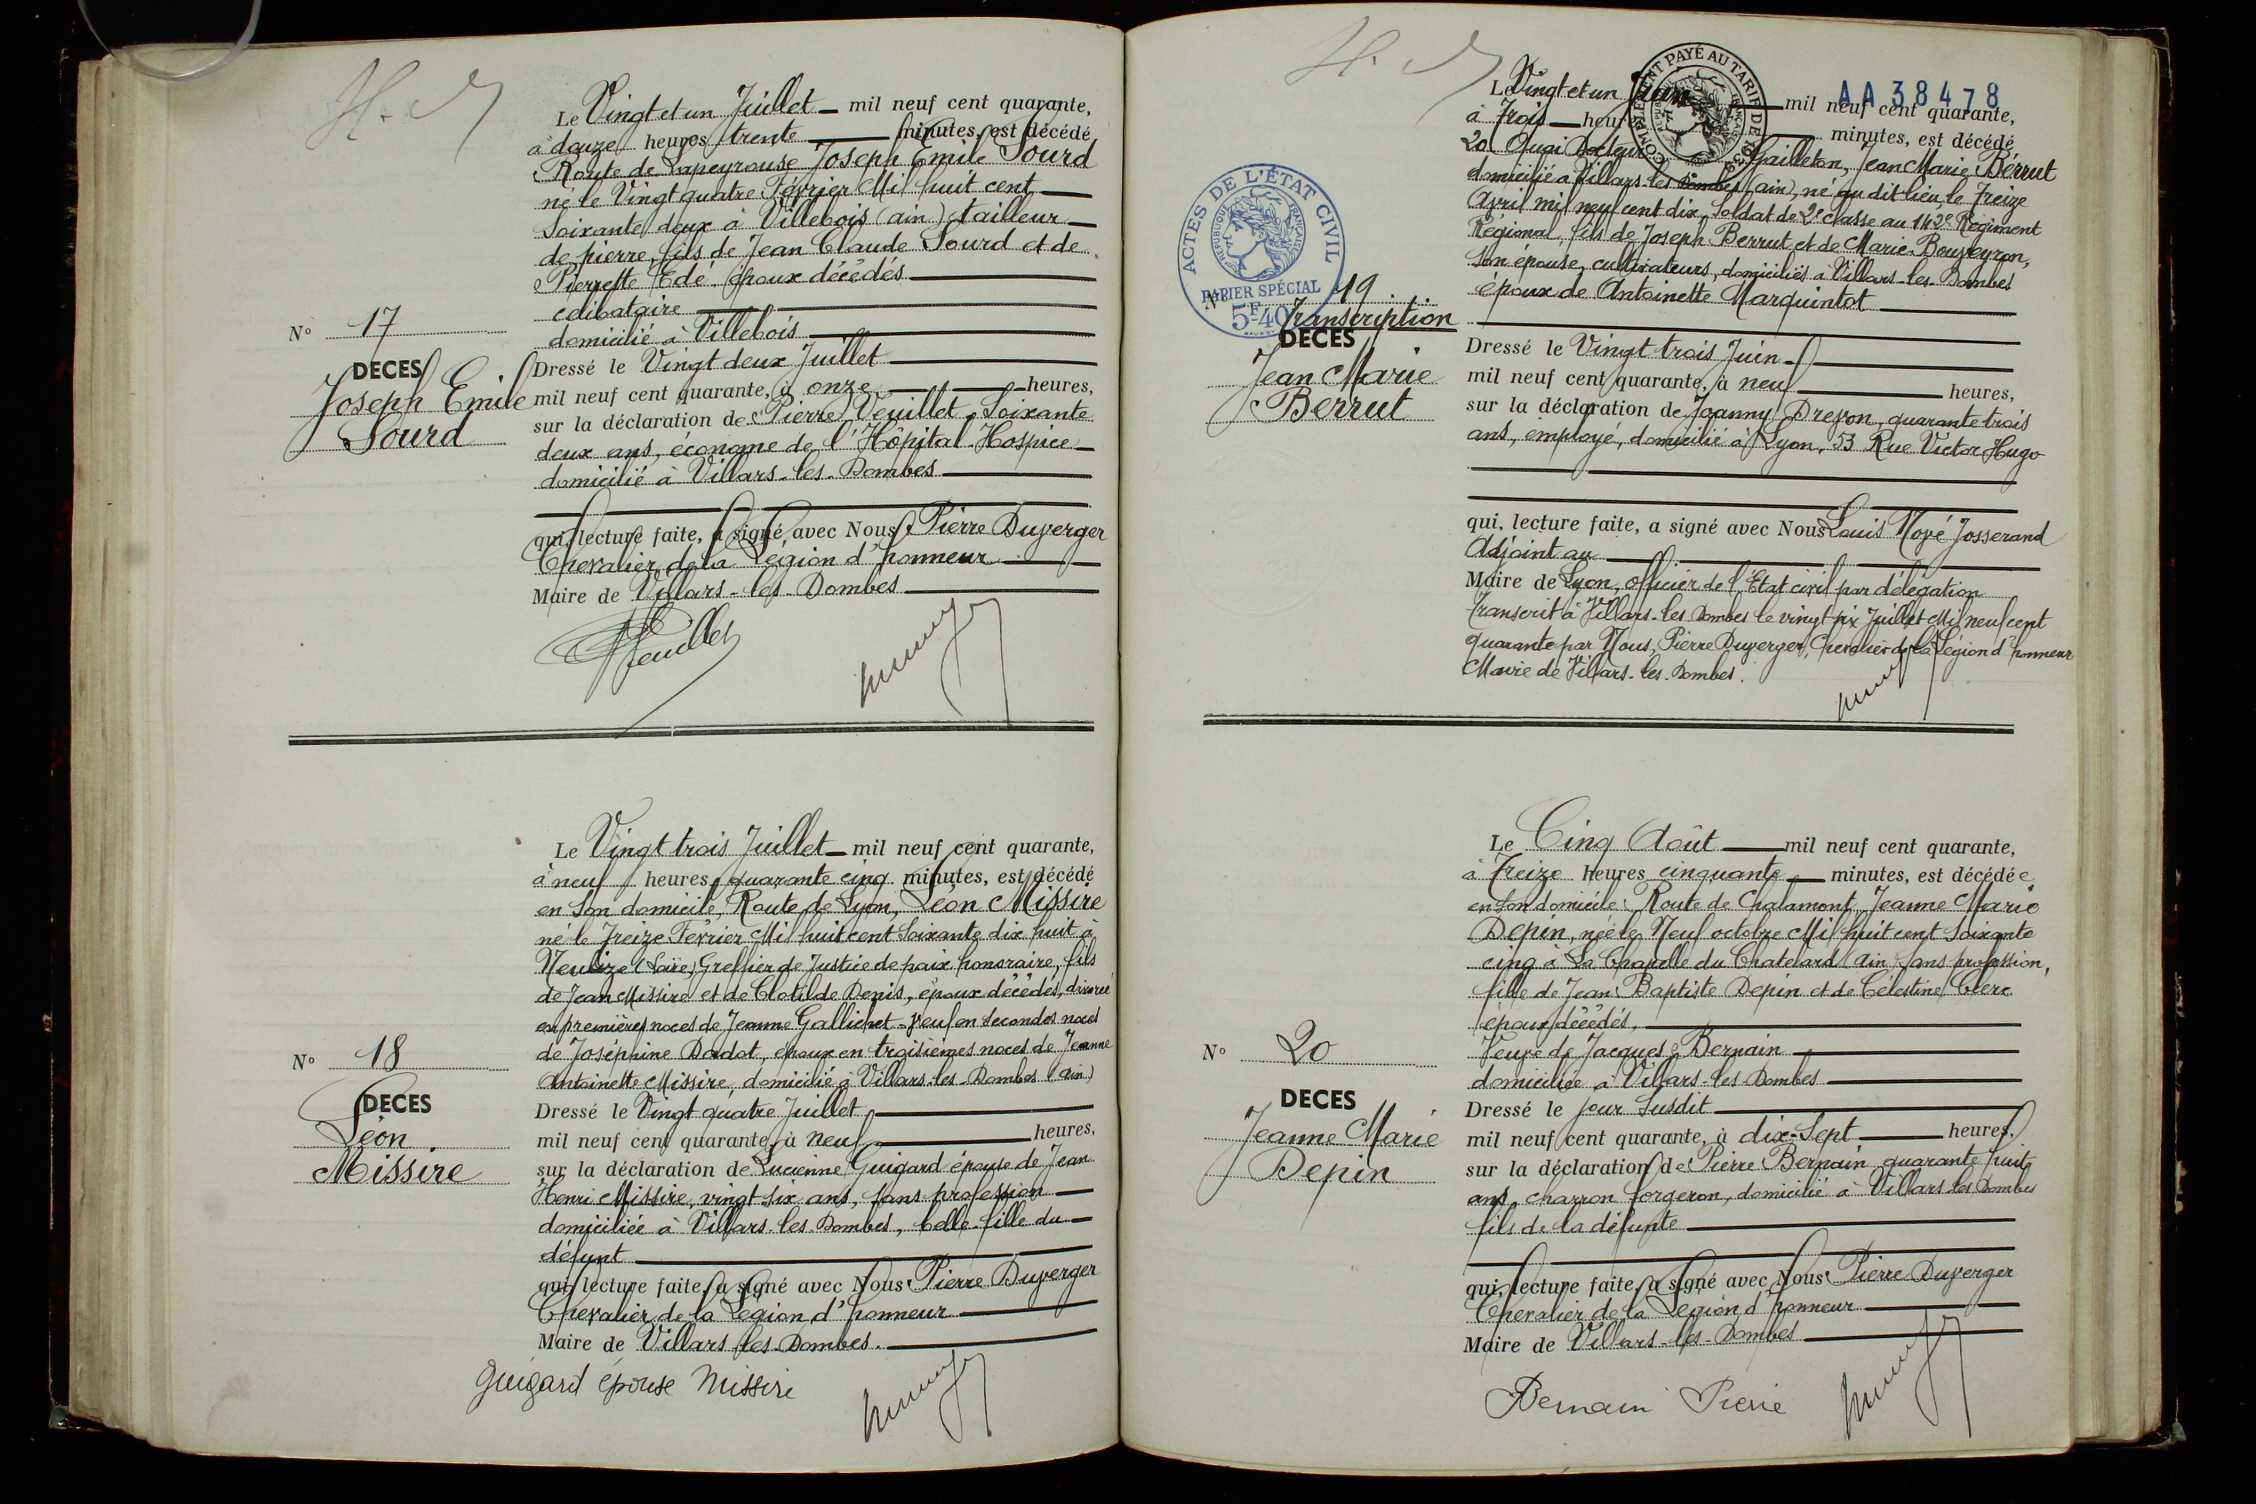 H. D
Le Vingt et un Juillet mil neuf cent quarante,
à douze heures trente minutes, est décédé
Route de Lapeyrouse Joseph Emile Sourd
né le Vingt quatre Février Mil huit cent
soixante deux à Villebois (ain) tailleur
de pierre, fils de Jean Claude Sourd et de
Pierrette Ede, époux décédés
célibataire
domicilié à Villebois
N° 17
DECES
Joseph Emile
Sourd
Dressé le Vingt deux Juillet
mil neuf cent quarante, à onze heures,
sur la déclaration de Pierre Veuillet, Soixante
deux ans, économe de l'Hôpital-Hospice
domicilié à Villars-les-Dombes
qui, lecture faite, a signé avec Nous Pierre Duverger
Chevalier de la Légion d'honneur
Maire de Villars-les-Dombes
Veuillet
Le Vingt trois Juillet mil neuf cent quarante,
à neuf heures quarante cinq minutes, est décédé
en son domicile, Route de Lyon, Léon Missire
né le Treize Février Mil huit cent Soixante dix huit à
Neulize (Loire) Greffier de Justice de paix honoraire, fils
de Jean Missire et de Clotilde Denis, époux décédés, divorcé
en premières noces de Jeanne Gallichet - Veuf en secondes noces
de Joséphine Dadot, époux en troisièmes noces de Jeanne
Antoinette Missire, domicilié à Villars-les-Dombes (ain)
N° 18
DECES
Léon
Missire
Dressé le Vingt quatre Juillet
mil neuf cent quarante, à neuf heures,
sur la déclaration de Lucienne Guigard épouse de Jean
Henri Missire, vingt six ans, sans profession
domiciliée à Villars-les-Dombes, belle-fille du
défunt
qui, lecture faite, a signé avec Nous Pierre Duverger
Chevalier de la Légion d'honneur
Maire de Villars-les-Dombes.
Guigard épouse Missire
H. D
COMPLEMENT PAYÉ AU TARIF DE
AA 38478
Le Vingt et un Juin mil neuf cent quarante,
à Trois heures minutes, est décédé
20 Quai Docteur Gailleton, Jean Marie Berrut
domicilié à Villars-les-Dombes (ain), né au dit lieu, le Treize
Avril mil neuf cent dix, Soldat de 2e classe au 142e Régiment
Régional, fils de Joseph Berrut et de Marie Bouveyron,
Son épouse, cultivateurs, domiciliés à Villars-les-Dombes
époux de Antoinette Marquintot
ACTES DE L'ÉTAT CIVIL
RÉPUBLIQUE FRANÇAISE
PAPIER SPÉCIAL
5F40
N° 19
Transcription
DECES
Jean Marie
Berrut
Dressé le Vingt trois Juin
mil neuf cent quarante, à neuf heures,
sur la déclaration de Joanny Dreyron, quarante trois
ans, employé, domicilié à Lyon, 53 Rue Victor Hugo
qui, lecture faite, a signé avec Nous Louis Nové Josserand
Adjoint au
Maire de Lyon, officier de l'Etat civil par délégation
Transcrit à Villars-les-Dombes le vingt six Juillet Mil neuf cent
quarante par Nous, Pierre Duverger, Chevalier de la Légion d'honneur
Maire de Villars-les-Dombes.
Le Cinq Août mil neuf cent quarante,
à Treize heures cinquante minutes, est décédée
en son domicile Route de Chalamont, Jeanne Marie
Depin, née le Neuf octobre Mil huit cent soixante
cinq à La Chapelle du Chatelard (ain) sans profession,
fille de Jean Baptiste Depin et de Célestine Clerc
époux décédés,
Veuve de Jacques Bernain
domiciliée à Villars-les-Dombes
N° 20
DECES
Jeanne Marie
Depin
Dressé le jour susdit
mil neuf cent quarante, à dix-Sept heures,
sur la déclaration de Pierre Bernain quarante huit
ans, charron forgeron, domicilié à Villars-les-Dombes
fils de la défunte
qui, lecture faite, a signé avec Nous Pierre Duverger
Chevalier de la Légion d'honneur
Maire de Villars-les-Dombes
Bernain Pierre